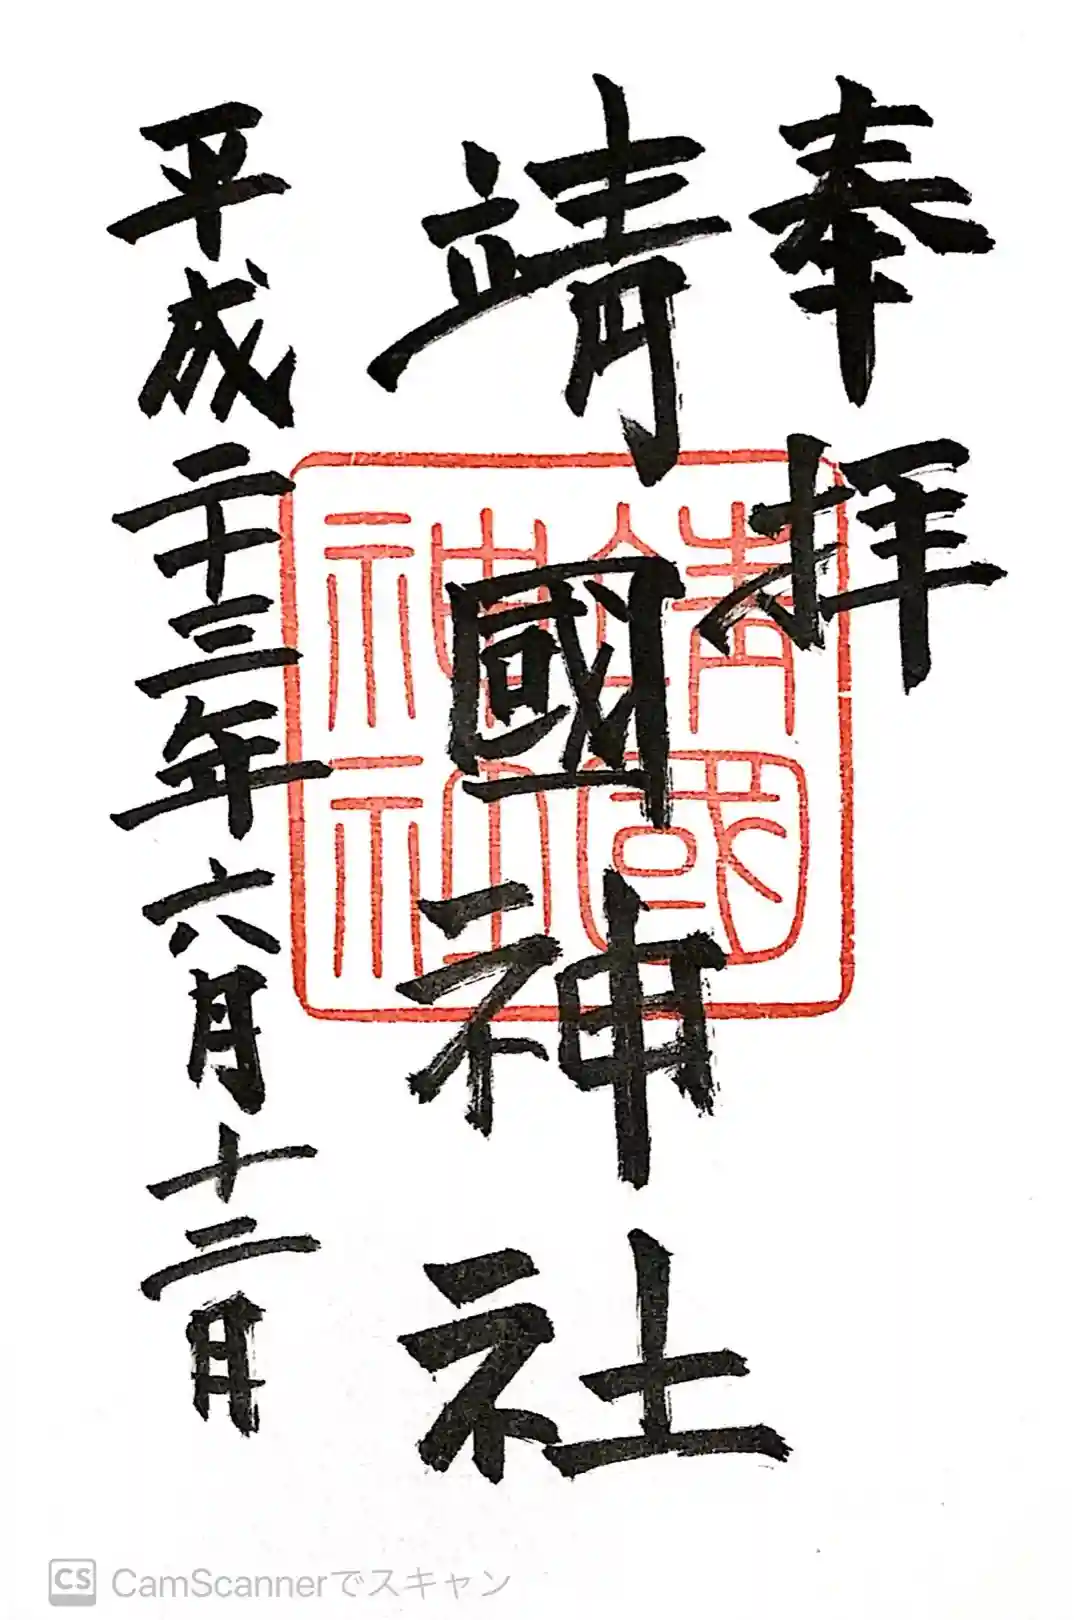 奉拝
靖國神社
靖國神社
平成二十三年六月十二日
CS CamScannerでスキャン